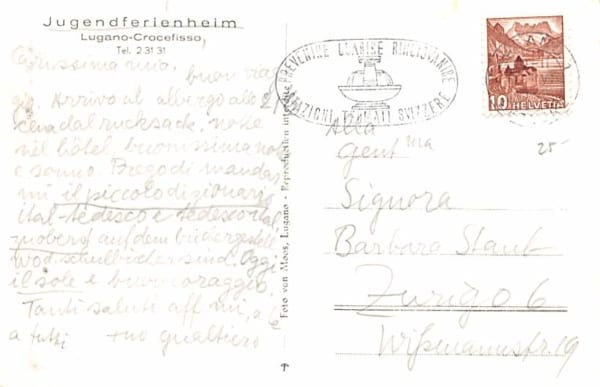 Jugendferienheim
Lugano-Crocefisso
Tel. 2 31 31
Carissima mia,
buon viag
gio. Arrivo al albergo alle
cena dal rucksack, notte
nel hôtel, buonissima notte
e sonno. Prego di mandar
mi il piccolo dizionario
ital-tedesco e tedesco ital,
zuoberst auf dem büchergestell
wo d. schulbücher sind. Oggi
il sole e buon coraggio.
Tanti saluti aff mi, a te
a tutti tuo gualtiero
Foto von Moos, Lugano - Reproduction interdite
PREVENIRE GUARIRE RINGIOVANIRE
STAZIONI TERMALI SVIZZERE
10 HELVETIA
25-
Alla
Gent ma
Signora
Barbara Staub
Zurigo 6
Wißmannstr. 19